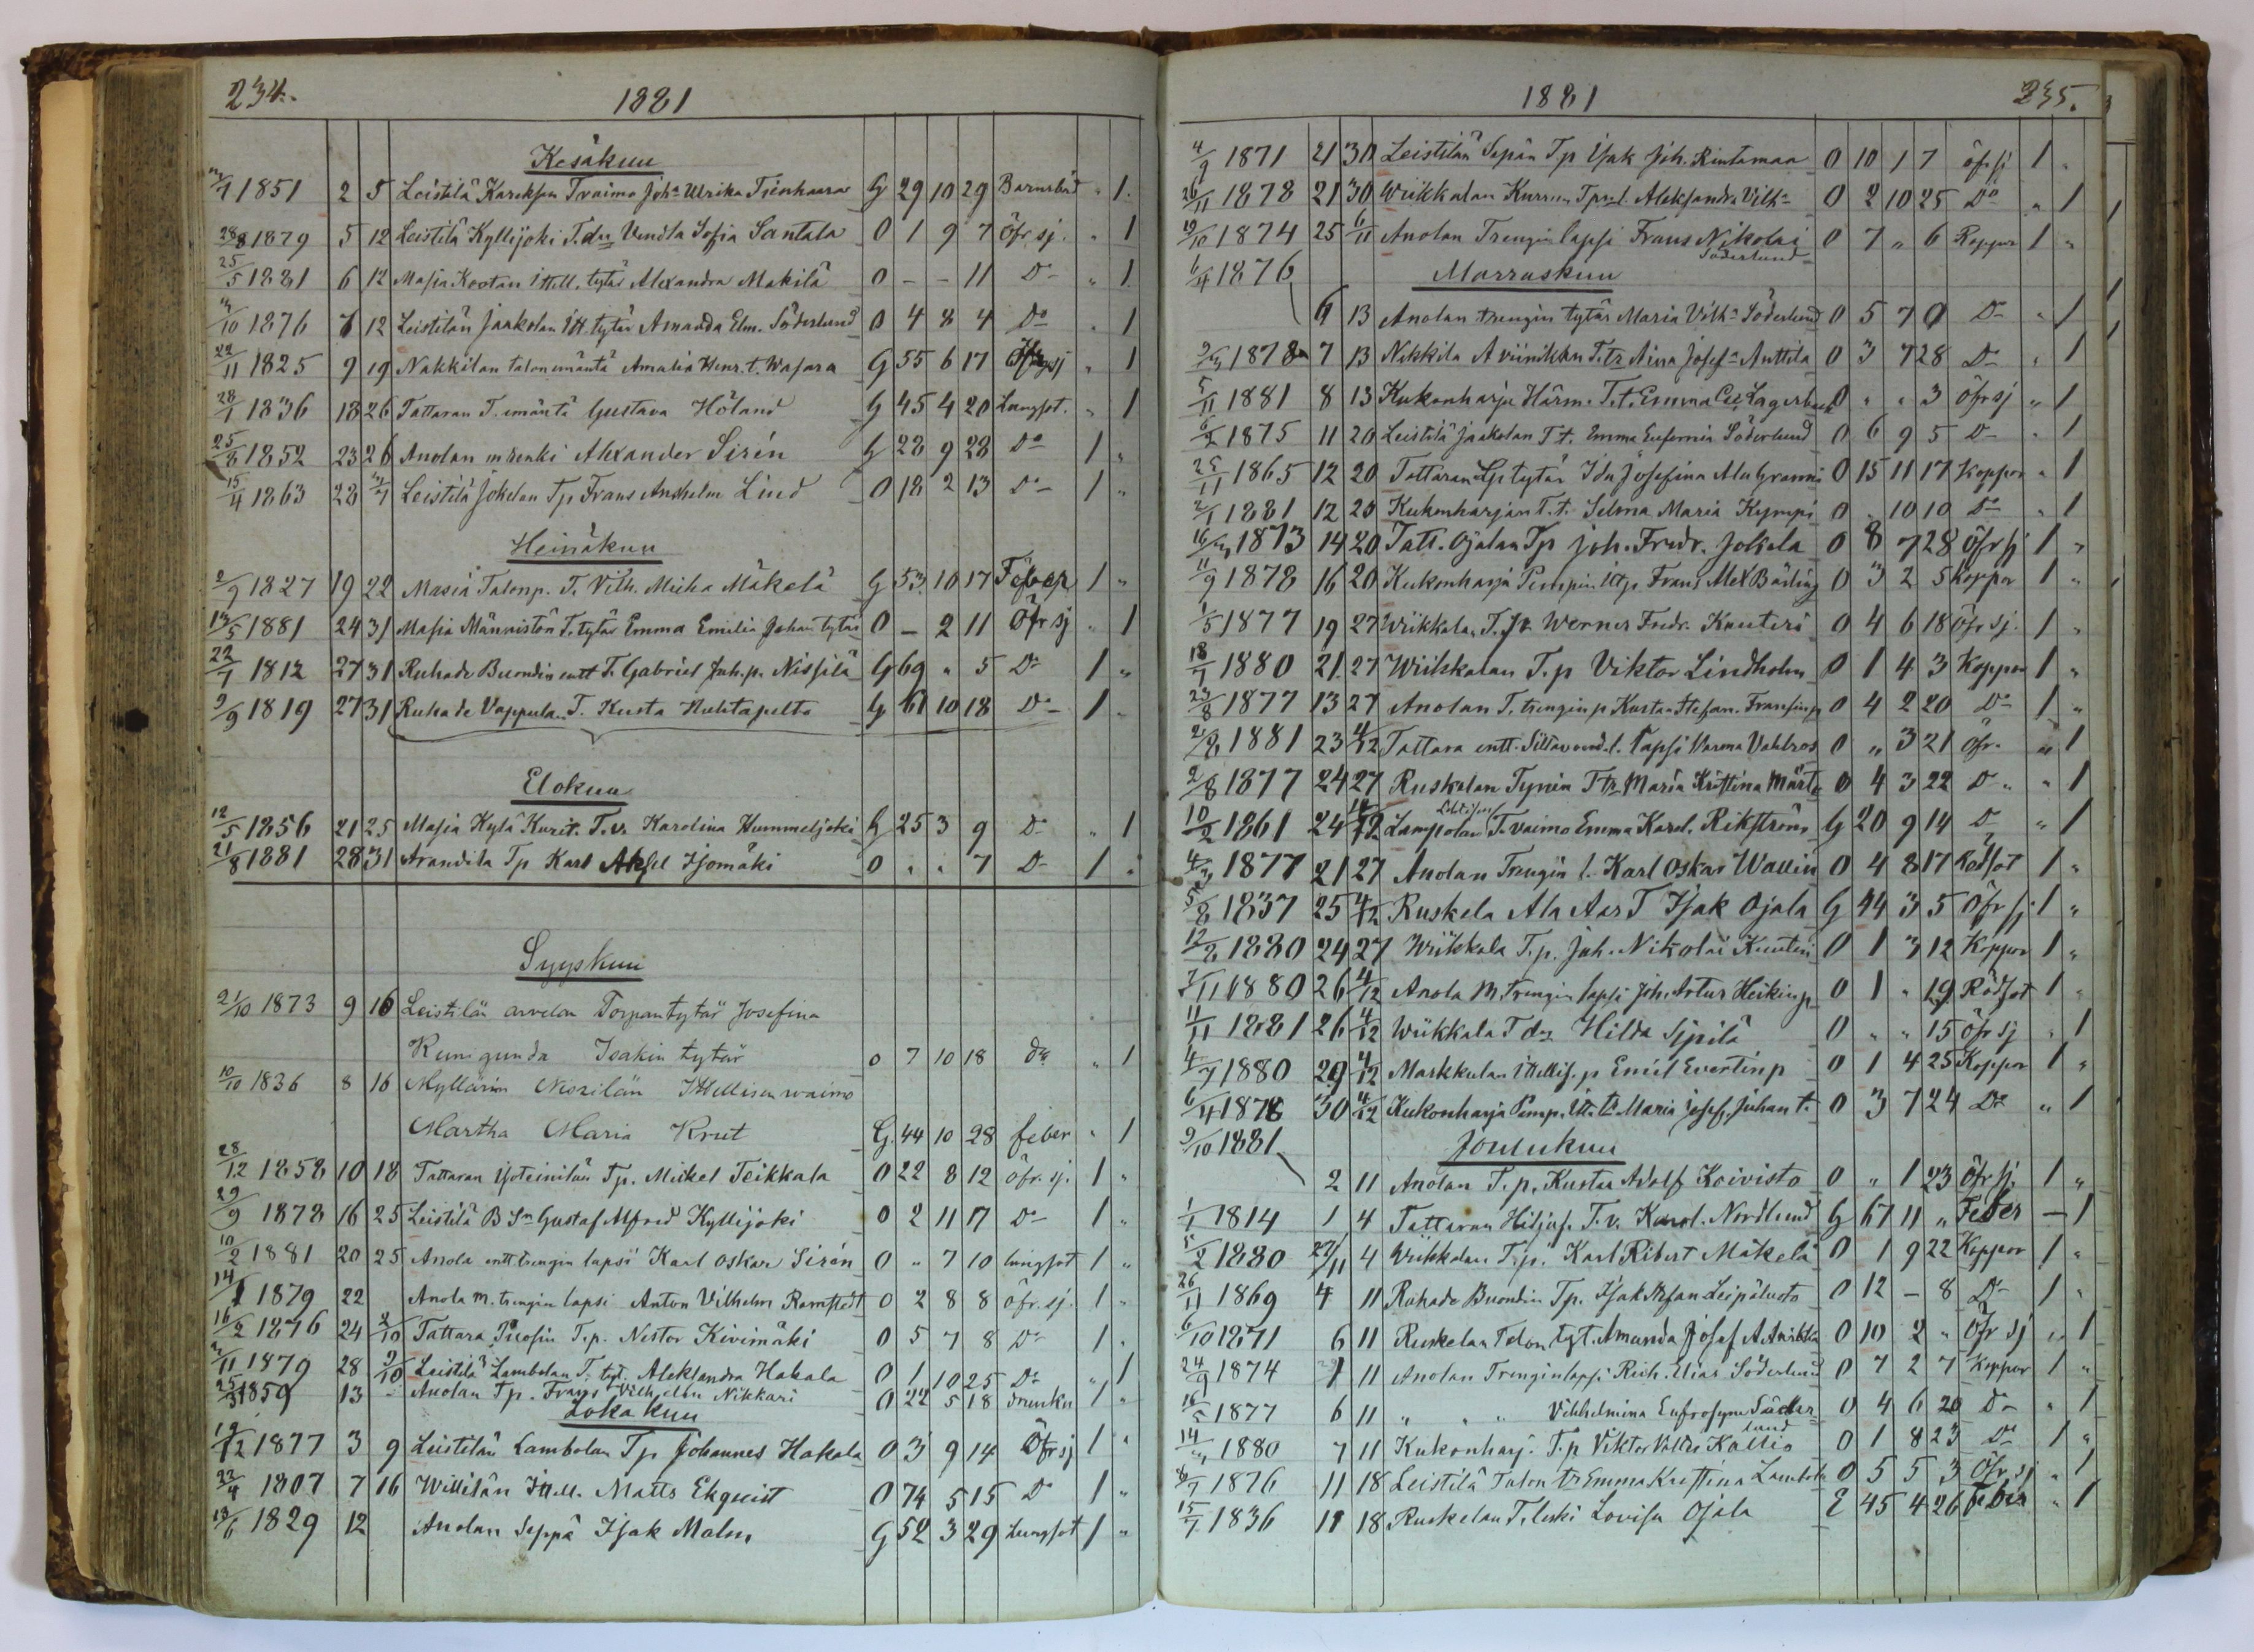 234.
1881
Kesäkuu
1851 2 5 Leistilä Tvaimo Joh^a Ulrika Tienhaara G 29 10 29 Barnsbörd „ 1.
28/8 1879 5 12 Leistilä Kyllijoki T.dr Vendla Sofia Santala O 1 9 7 Öfr sj. „ 1
25/5 1881 6 12 Masia Kootan Itsell. tytär Alexandra Makilä O - - 11 D^o „ 1
1876 7 12 Leistilän Jaakolan Itt. tytär Amanda Elm. Söderlund O 4 8 4 D^o „ 1
22/11 1825 9 19 Nakkilan talon emäntä Amalia Henr. t. Wafara G 55 6 17 „ 1
28/1 1836 18 26 Tattaran T. emäntä Gustava Höland G 45 4 20 Lungsot. „ 1
25/8 1852 23 26 Anolan m renki Alexander Sirén G 28 9 28 D^o 1 „
15/4 1863 28 Leistilä Jokelan Tp Frans Anshelm Lind O 18 2 13 D^o 1 „
Heinäkuu
2/9 1827 19 22 Masia Talonp. T. Vilh. Mäkelä G 53 10 17 Feber 1 „
13/5 1881 24 31 Masia Männistön T. tytär Emma Emilia Johan tytär O - 2 11 Öfr sj „ 1
22/7 1812 27 31 Ruhade Buondin entt T. Gabriel Juh. p. Nissilä G 69 „ 5 D^o 1 „
9/9 1819 27 31 Ruhade Vappulan T. Kusta Huhtapelto G 61 10 18 D^o 1 „
Elokuu
12/5 1856 21 25 Masia Kylä T.v. Karolina Hummeljoki G 25 3 9 D^o „ 1
21/8 1881 28 31 Arandila Tp Karl Aksel Isomäki O „ „ 7 D^o 1 „
Syyskuu
21/10 1873 9 16 Leistilän arvelan Torpantytär Josefina
Kunigunda Isakin tytär o 7 10 18 d^o „ 1
10/10 1836 8 16 Myllärin Nissilän Ittellisen waimo
Martha Maria Krut G. 44 10 28 feber „ 1
28/12 1858 10 18 Tattaran Tp. Mickel Teikkala O 22 8 12 öfr. sj. 1 „
29/9 1878 16 25 Leistilä B Sn Gustaf Alfred Kyllijoki O 2 11 17 D^o 1 „
10/2 1881 20 25 Anola entt trengin lapsi Karl Oskar Sirén O „ 7 10 lungsot 1 „
14/1 1879 22 Anola m. trengin lapsi Anton Vilhelm Ramstedt O 2 8 8 öfr. sj. 1 „
16/2 1876 24 2/10 Tattara T.p. Nestor Kivimäki O 5 7 8 D^o 1 „
1879 28 9/10 Leistilä Lambolan T. tyt. Aleksandra Hakala O 1 10 25 D^o „ 1
1859 13 Anolan Tp. Frans Vilhelm Nikkari O 22 5 18 drunkn 1 „
Lokakuu
19/12 1877 3 9 Leistilän Lambolan Tp Johannes Hakala O 3 9 14 Öfr sj 1 „
22/4 1807 7 16 Willilän Itsell. Matts Ekqvist O 74 5 15 D^o 1 „
13/6 1829 12 Anolan Seppä Isak Malm G 52 3 29 Lungsot 1 „
1881
235.
4/9 1871 21 30 Leistilän Sepän T.p Isak Joh. Rintamaa O 10 1 7 öfr sj 1 „
26/11 1878 21 30 Wiikkalan Aleksandra Vilh^a O 2 10 25 D^o „ 1
19/10 1874 25 6/11 Anolan Trengin lapsi Frans Nikolai Söderlund O 7 „ 6 Koppor 1 „
6/4 1876 Marraskuu
6 13 Anolan trengin tytär Maria Vilh^a Söderlund O 5 7 0 D^o „ 1
1878 7 13 Nakkila T.tr Aina Josef^a Anttila O 3 7 28 D^o „ 1
5/11 1881 8 13 Kukonharja Härm. T.t. Emma Lagerback O „ „ 3 Öfr sj „ 1
6/2 1875 11 20 Leistilä Jaakolan T t. Emma Eufemia Söderlund O 6 9 5 D^o „ 1
25/11 1865 12 20 Tattaran tytär Ida Josefina Malmgranni O 15 11 17 Koppor „ 1
2/1 1881 12 20 Kukonharjan T.t. Selma Maria Kympi O „ 10 10 D^o „ 1
1873 14 20 Tatt. Ojalan Tp Joh. Fredr. Jokela O 8 7 28 Öfr sj 1 „
11/9 1878 16 20 Kukonharja Pimpin Frans Alex Bärling O 3 2 5 Koppor 1 „
1/5 1877 19 27 Wiikkalan T. Werner Fredr. Kuuteri O 4 6 18 Öfr sj. 1 „
18/7 1880 21 27 Wiikkalan T.p Viktor Lindholm O 1 4 3 Koppor 1 „
23/8 1877 13 27 Anolan T. trengin p Kustaa Stefan. Fransinp O 4 2 20 D^o 1 „
2/8 1881 23 4/12 Tattara entt. lapsi Varma Vahlros O „ 3 21 Öfr. „ 1
2/8 1877 24 27 Ruskelan Tynin T tr Maria Kristina Märt O 4 3 22 D^o „ 1
10/2 1861 24 Lampolan T. vaimo Emma Karol. Rikström G 20 9 14 D^o „ 1
1877 21 27 Anolan Trengin l. Karl Oskar Wallin O 4 8 17 Rödsot 1 „
5/8 1837 25 4/12 Ruskela Ala T Isak Ojala G 44 3 5 Öfr sj 1 „
12/8 1880 24 27 Wiikkala T.p. Joh. Nikolai Kuuteri O 1 3 12 Koppor 1 „
7/11 1880 26 4/12 Anola M. trengin lapsi Joh. Artur Heikinp O 1 „ 19 Rödsot 1 „
11/11 1881 26 4/12 Wiikkala T dr Hilda Sipilä O „ „ 15 öfr sj „ 1
4/7 1880 29 4/12 Markkulan Ittellis. p Emil Evertinp O 1 4 25 Koppor 1 „
6/4 1878 30 4/12 Kukonharja Pimp. Itt. tr Maria Josef. Juhan t. O 3 7 24 D^o „ 1
9/10 1881 Joulukuu
2 11 Anolan T.p. Kustaa Adolf Koivisto O „ 1 23 Öfr sj 1 „
1/1 1814 1 4 Tattaran T.v. Karol. Nordlund G 67 11 „ Feber — 1
5/2 1880 27/11 4 Wiikkalan T.p. Karl Ribert Mäkelä O 1 9 22 Koppor 1 „
26/11 1869 4 11 Ruhade Buondin Tp. Isak Leipäluoto O 12 - 8 D^o 1 „
6/10 1871 6 11 Ruskelan Talon tyt. Amanda Josef. O 10 2 „ Öfr sj „ 1
24/9 1874 1 11 Anolan Trengin lapsi Rich. Elias Söderlund O 7 2 7 Koppor 1 „
16/5 1877 6 11 „ „ „ Vilhelmina Eufrosyne Söderlund O 4 6 20 D^o „ 1
1880 7 11 Kukonharj. T.p Viktor Kallio O 1 8 23 D^o 1 „
1876 11 18 Leistilä Talon tr Emma Kristina Lambola O 5 5 3 Öfr sj „ 1
15/7 1836 11 18 Ruskelan T. leski Lovisa Ojala E 45 4 26 Feber „ 1